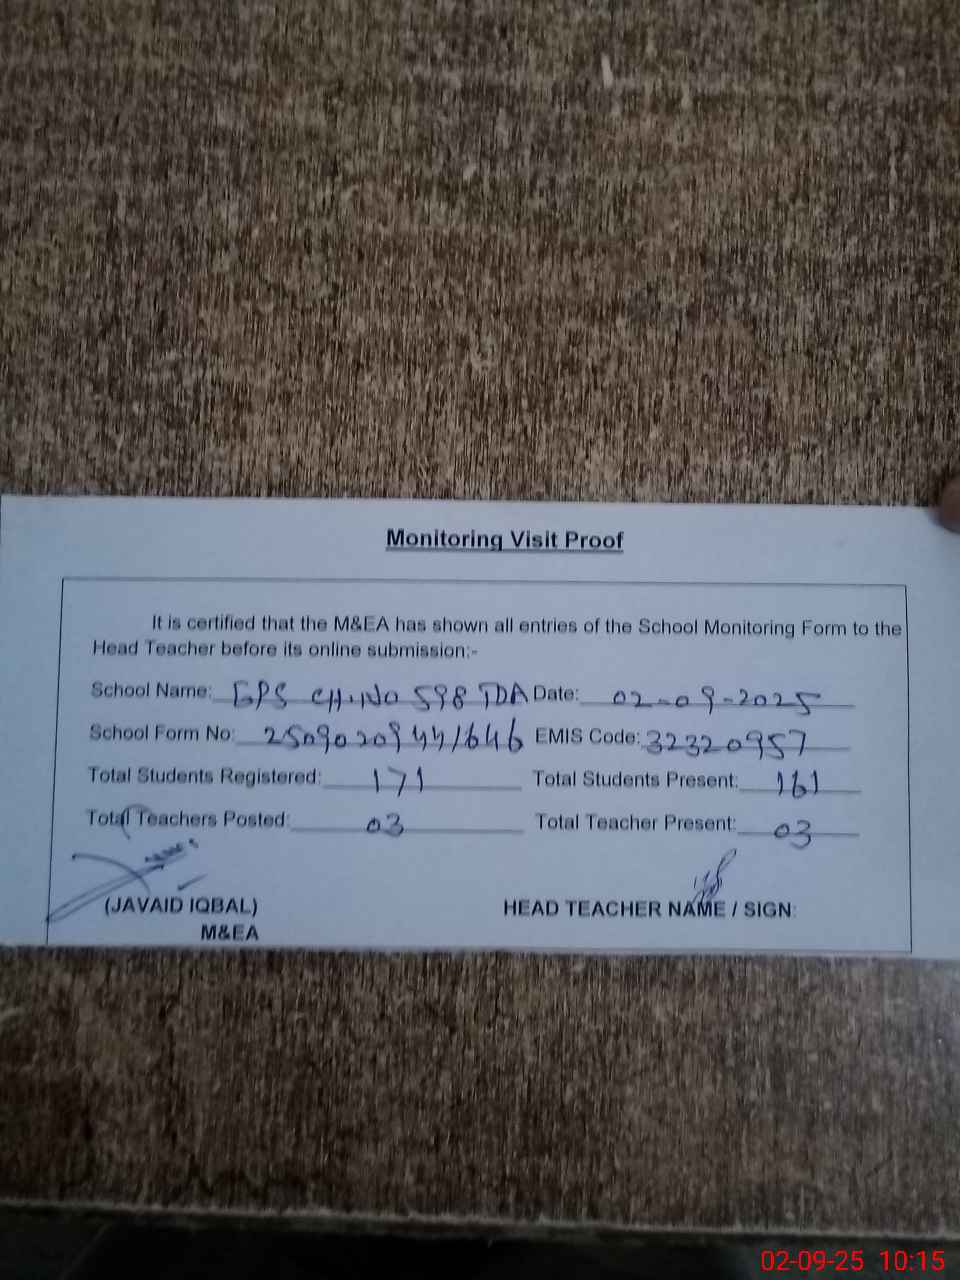 Monitoring Visit Proof
It is certified that the M&EA has shown all entries of the School Monitoring Form to the
Head Teacher before its online submission:-
School Name: GPS CH.No 598 TDA Date: 02-09-2025
School Form No: 25090209441646 EMIS Code: 32320957
Total Students Registered: 171 Total Students Present: 161
Total Teachers Posted: 03 Total Teacher Present: 03
(JAVAID IQBAL) HEAD TEACHER NAME / SIGN:
M&EA
02-09-25 10:15